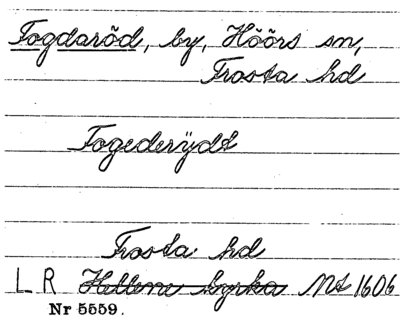 Fogdaröd, by, Höörs sn,
Frosta hd
Fogederÿdt
Frosta hd
LR Hellena kyrka Nt 1606
Nr 5559.